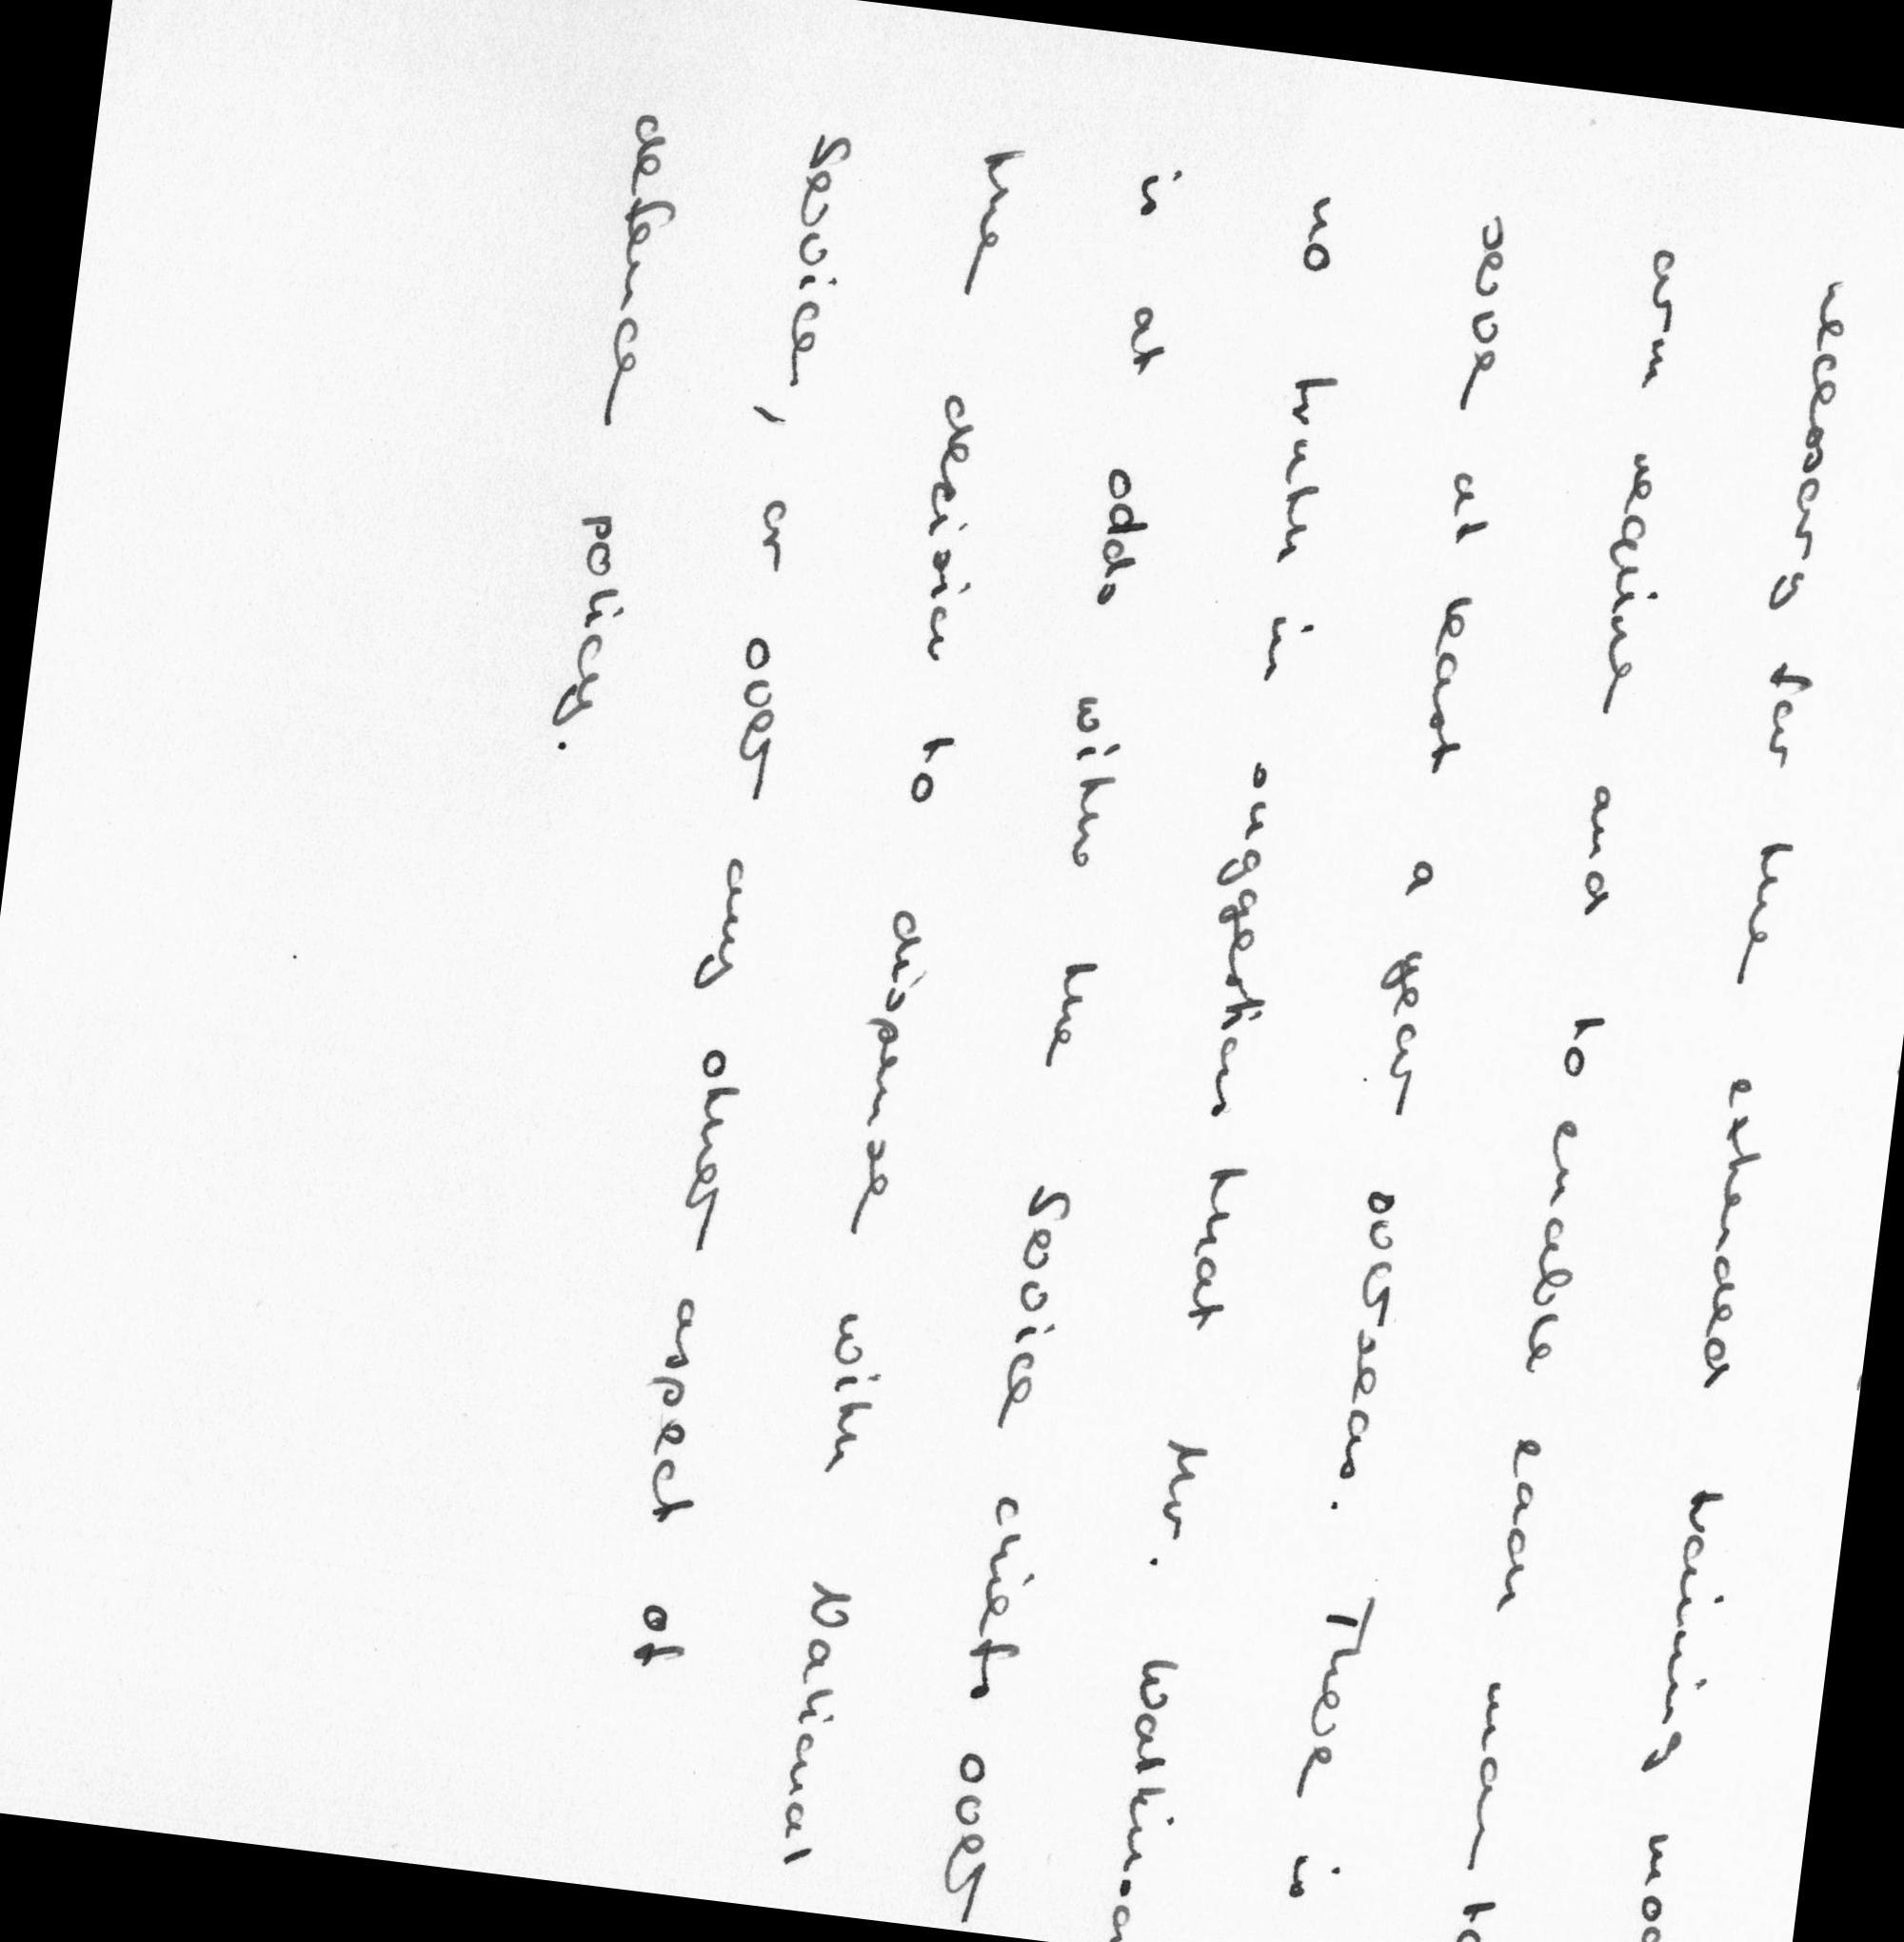 necessary for the extended training
arm require and to enable each man to
serve at least a year overseas. There is
no truth in suggestions that Mr.
is at odds with the Service chiefs over
the decision to dispense with National
Service, or over any other aspect of
defence policy.